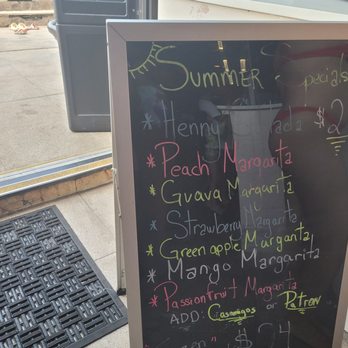 Summer Specials
* Henny Colada $2
* Peach Margarita
* Guava Margarita
* Strawberry Margarita
* Green apple Margarita
* Mango Margarita
* Passionfruit Margarita
ADD: Casamigos or Patron
$24